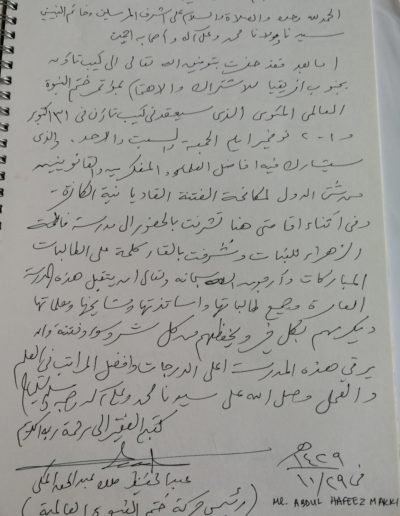 الحمد لله وحده والصلاة والسلام على أشرف المرسلين وخاتم النبيين
سيدنا ومولانا محمد وعلى آله وأصحابه أجمعين
أما بعد فقد حضرت بتوفيق الله تعالى إلى كيب تاؤن
بجنوب أفريقيا للاشتراك والاهتمام بمؤتمر ختم النبوة
العالمي المئوي الذي سيعقد في كيب تاؤن في ٣١ أكتوبر
و ١-٢ نوفمبر أيام الجمعة والسبت والأحد. والذي
سيشارك فيه أفاضل العلماء والمفكرين والقانونيين
من شتى الدول لمكافحة الفتنة القاديانية الكافرة -
وفي أثناء إقامتي هنا تشرفت بالحضور إلى مدرسة فاطمة
الزهراء للبنات وتشرفت بإلقاء كلمة على الطالبات
المباركات وأرجو من الله سبحانه وتعالى أن يتقبل هذه المدرسة
العامرة وجميع طالباتها وأساتذتها ومشايخها ومعلماتها
ويكرمهم بكل خير ويحفظهم من كل شر وسوء وفتنة وأن
يرقي هذه المدرسة أعلى الدرجات وأفضل المراتب في العلم
والعمل وصلى الله على سيدنا محمد وعلى آله وصحبه وسلم تسليما
كتبه الفقير إلى رحمة ربه الكريم
عبد الحفيظ ملك عبد الحق المكي
(رئيس حركة ختم النبوة العالمية)
١٤٢٩ هـ
في ١٠/٢٩
MR. ABDUL HAFEEZ MAKKI